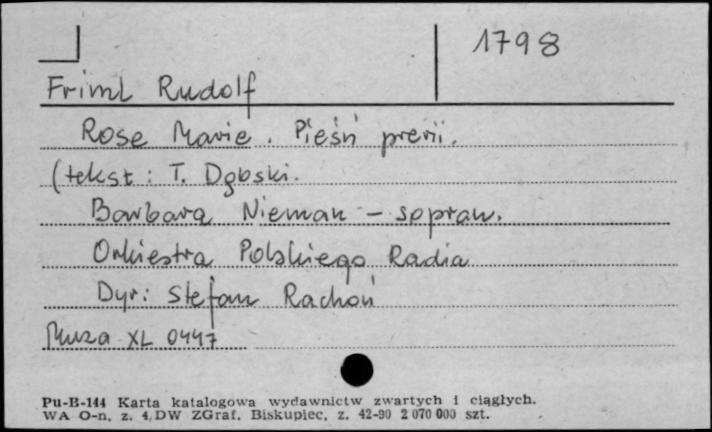 1798
Friml Rudolf
Rose Marie. Pieśń prerii.
(tekst: T. Dąbski.
Barbara Nieman – sopran.
Orkiestra Polskiego Radia
Dyr: Stefan Rachoń
Muza XL 0447
Pu-B-144 Karta katalogowa wydawnictw zwartych i ciągłych.
WA O-n, z. 4, DW ZGraf. Biskupiec, z. 42-90 2 070 000 szt.